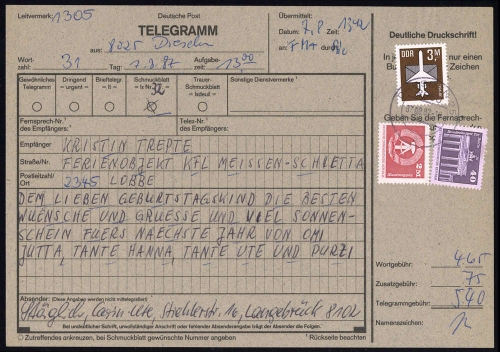 Leitvermerk: 1305
Deutsche Post
TELEGRAMM
aus: 8025 Dresden
Wort-
zahl: 31
Tag: 7.8.87
Aufgabe-
zeit: 1300
Übermittelt:
Datum: 7.8 1342
an:
Deutliche Druckschrift!
In jedes nur einen
Bu Zeichen
DDR 3M
Gewöhnliches
Telegramm
Dringend
– urgent =
Brieftelegr.
– lt =
Schmuckblatt
– lx Nr. 32
Trauer-
Schmuckblatt
– lxdeuil =
Sonstige Dienstvermerke¹
Geben Sie die Fernsprech-
Fernsprech-Nr.¹
des Empfängers:
Telex-Nr.¹
des Empfängers:
Empfänger KRISTIN TREPTE
Straße/Nr. FERIENOBJEKT KFL MEISSEN-SCHLETTA
Postleitzahl/
Ort 2345 LOBBE
DDR
2M
DDR
40
DEM LIEBEN GEBURTSTAGSKIND DIE BESTEN
WUENSCHE UND GRUESSE UND VIEL SONNEN-
SCHEIN FUERS NAECHSTE JAHR VON OMI
JUTTA, TANTE HANNA, TANTE UTE UND PURZI
Wortgebühr: 4.65
Zusatzgebühr: 75
Telegrammgebühr: 5.40
Namenszeichen:
Absender: (Diese Angaben werden nicht mittelegrafiert)
Strehlerstr. 16, Langebrück 8102
Bei unzustellicher Anschrift, unvollständiger Anschrift oder fehlender Absenderangabe trägt der Absender die Folgen.
Zutreffendes ankreuzen, bei Schmuckblatt gewünschte Nummer angeben
¹ Rückseite beachten